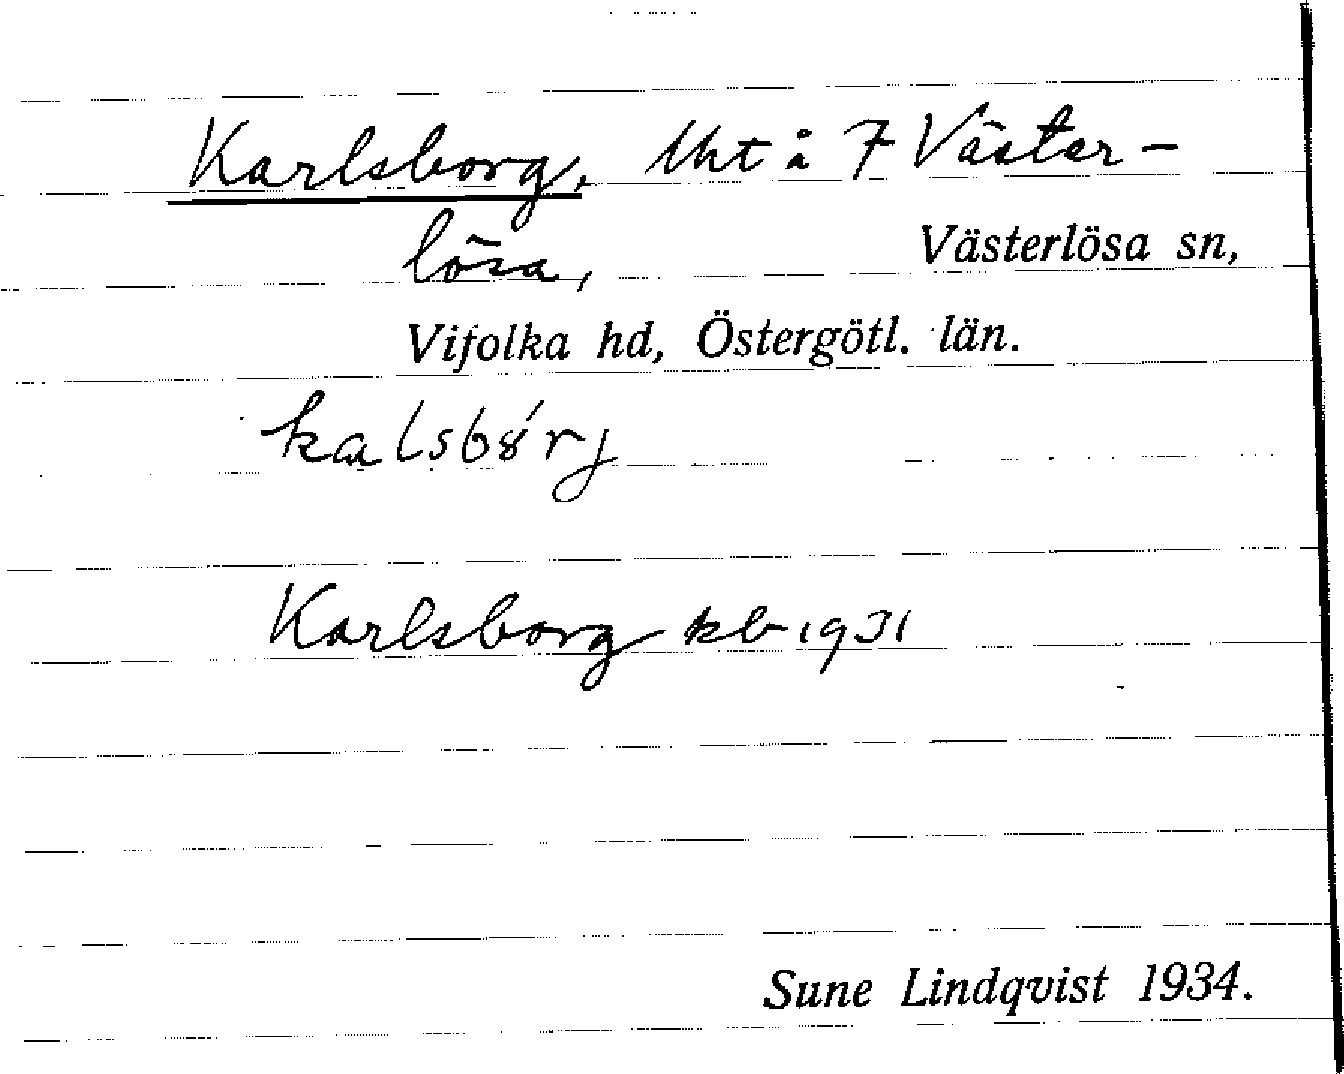 Karlsborg, lht å 7 Väster-
lösa, Västerlösa sn,
Vifolka hd, Östergötl. län.
kalsbórj
Karlsborg kb 1931
Sune Lindqvist 1934.